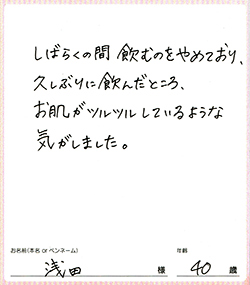 しばらくの間 飲むのをやめており、
久しぶりに飲んだところ、
お肌がツルツルしているような
気がしました。
お名前(本名 or ペンネーム) 年齢
浅田 様 40 歳